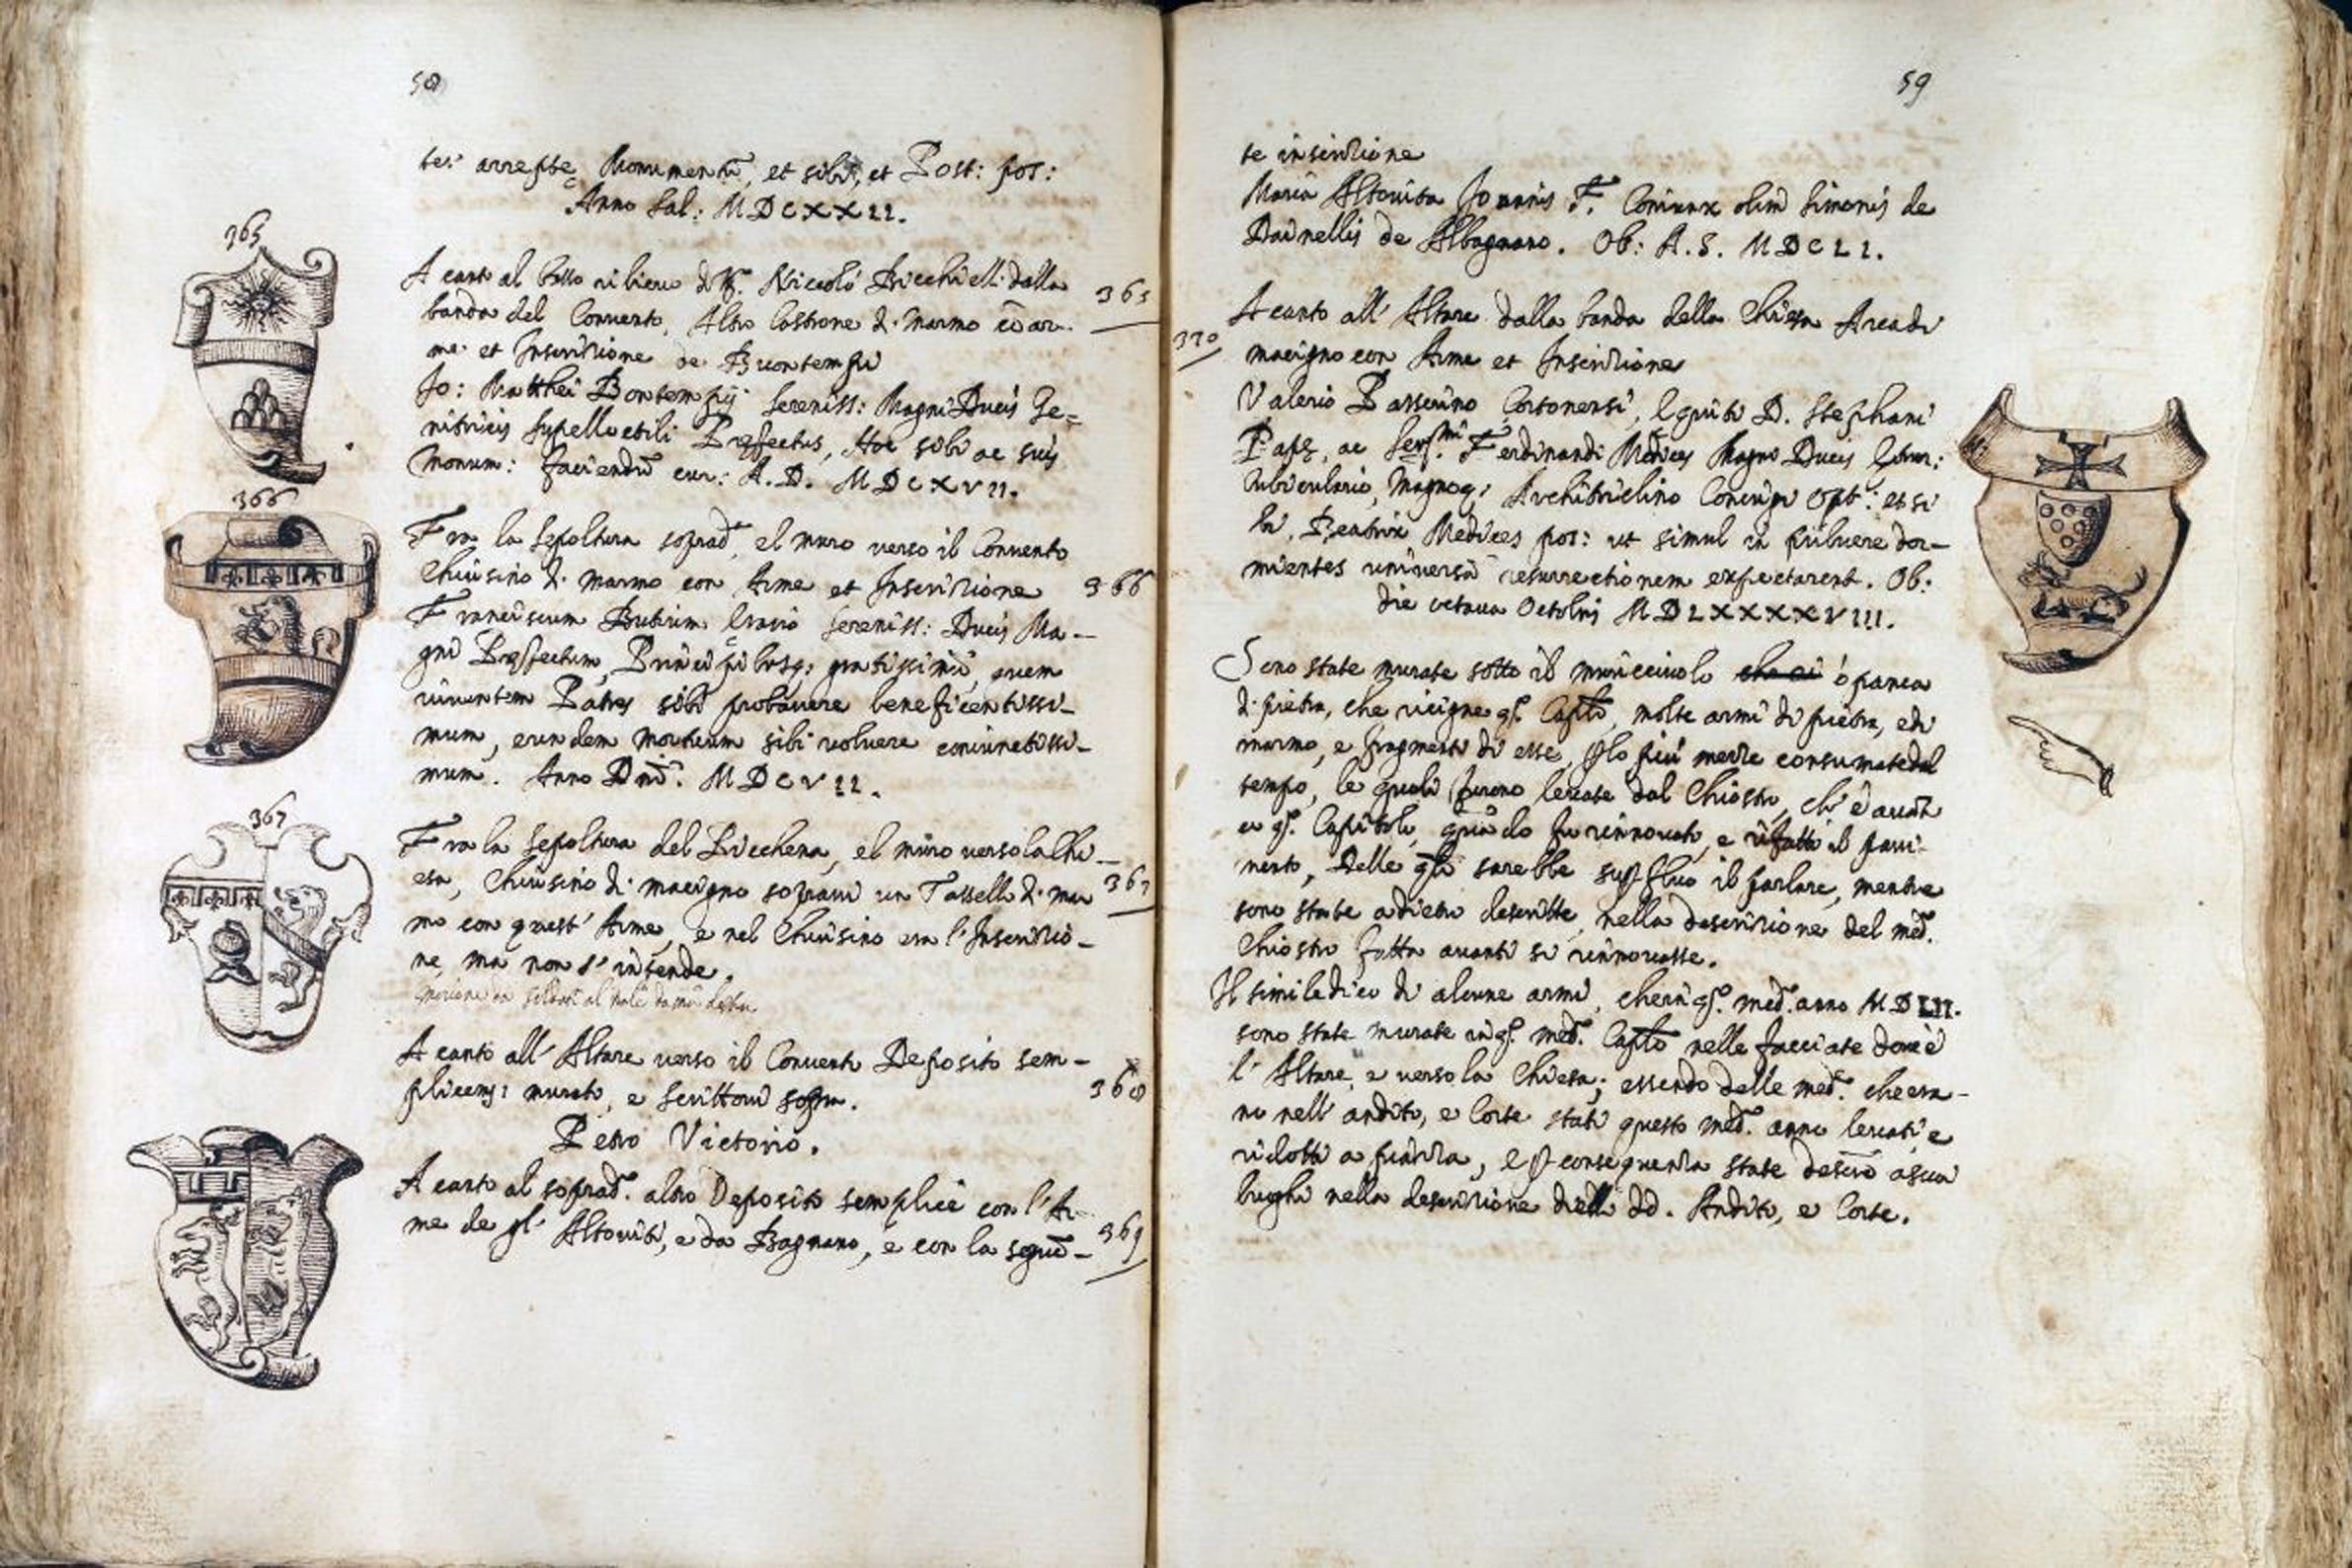 58
te: arrepte Monumentũ, et sibi, et Post: pos:
Anno Sal: MDCXXII.
365
A canto al
Niccolò
dalla
banda del Convento, Altro Lastrone di marmo con ar-
365
me et Inscrizione de Buontempi
Jo: Matthei Bontempij Sereniss: Magni Ducis Ge=
nitricis supellectili Præfectus, Hoc sibi ac suis
Monum: faciendũ cur: A.D. MDCXVII.
366
Fra la sepoltura soprad.ª el muro verso il Convento
Chiusino di marmo con Arme et Inscrizione
366
Franciscum
Sereniss: Ducis Ma-
gni Præfectum, Principibusq; gratissimũ, quem
viventem Patres sibi probavere beneficentissi-
mum, eundem mortuum sibi voluere coniunctissi-
mum. Anno Dnĩ. MDCVII.
367
Fra la sepoltura del
el muro verso la Chi-
esa, Chiusino di macigno sopravi un Tassello di mar
367
mo con quest' Arme, e nel Chiusino era l'Inscrizio-
ne, ma non s' intende.
A canto all' Altare verso il Convento Deposito sem-
plicem: murato, e scrittovi sopra.
368
Petro Victorio.
A canto al soprad.º altro Deposito semplice con l'Ar-
me de gl' Altoviti, e da Bagnano, e con la seguẽ-
369
59
te inscrizione
Maria Altovita Joannis F. Coniunx olim Simonis de
Dainellis de Albagnano. Ob: A.S. MDCLI.
A canto all' Altare dalla banda della Chiesa Arca di
370
macigno con Arme et Inscrizione
Valerio Passerino Cortonensi, Equiti D. Stephani
Papæ, ac Ser.mi Ferdinandi Medices Magni Ducis
Cubiculario, Magnoq; Architriclino Coniugi opt: et si
bi, Beatrix Medices pos: ut simul in pulvere dor-
mientes universã resurrectionem expectarent. Ob:
die octava Octobris MDLXXXXVIII.
Sono state murate sotto il muricciuolo che ci ò panca
di pietra, che ricigne q.º Capl̃o, molte armi di pietra, e di
marmo, e fragmenti di esse, p lo più mezze consumate dal
tempo, le quali furono levate dal Chiostro, ch' è avãti
a q.º Capitolo, quãdo fu rinnovato, e rifatto il pavi-
mento, Delle qli sarebbe supfluo il parlare, mentre
sono state adietro descritte, nella descrizione del med.º
Chiostro fatta avanti si rinnovasse.
Il simile dico di alcune armi, che in q.º med.º anno MDLII.
sono state murate in q.º med.º Capl̃o nelle facciate dove è
l' Altare, e verso la Chiesa; essendo delle med.e che era-
no nell' andito, e Corte stati questo med.º anno levati e
ridotti a
e p consequenza state descrē a suoi
luoghi nella descrizione delli dd. Andito, e Corte.